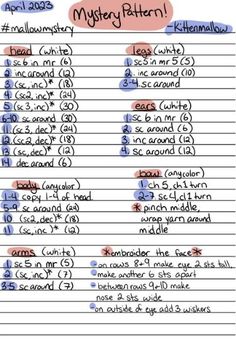 April 2023
Mystery Pattern!
#mallowmystery
-Kittenmallow
head (white)
1 sc 6 in mr (6)
2 inc around (12)
3 (sc, inc)* (18)
4 (sc2, inc)* (24)
5 (sc3, inc)* (30)
6-10 sc around (30)
11 (sc3, dec)* (24)
12 (sc2, dec)* (18)
13 (sc, dec)* (12)
14 dec around (6)
body (any color)
1-4 copy 1-4 of head
5-9 sc around (24)
10 (sc2, dec)* (18)
11 (sc, dec)* (12)
arms (white)
1 sc 5 in mr (5)
2 (sc, inc)* (7)
3-5 sc around (7)
legs (white)
1 sc 5 in mr 5 (5)
2 inc around (10)
3-4 sc around
ears (white)
1 sc 6 in mr (6)
2 sc around (6)
3 inc around (12)
4 sc around (12)
bow (any color)
1 ch 5, ch 1 turn
2-7 sc 4, ch 1 turn
* pinch middle,
wrap yarn around
middle
*embroider the face*
on rows 8+9 make eye 2 sts tall,
make another 6 sts apart
between rows 9+10 make
nose 2 sts wide
on outside of eye add 3 wiskers